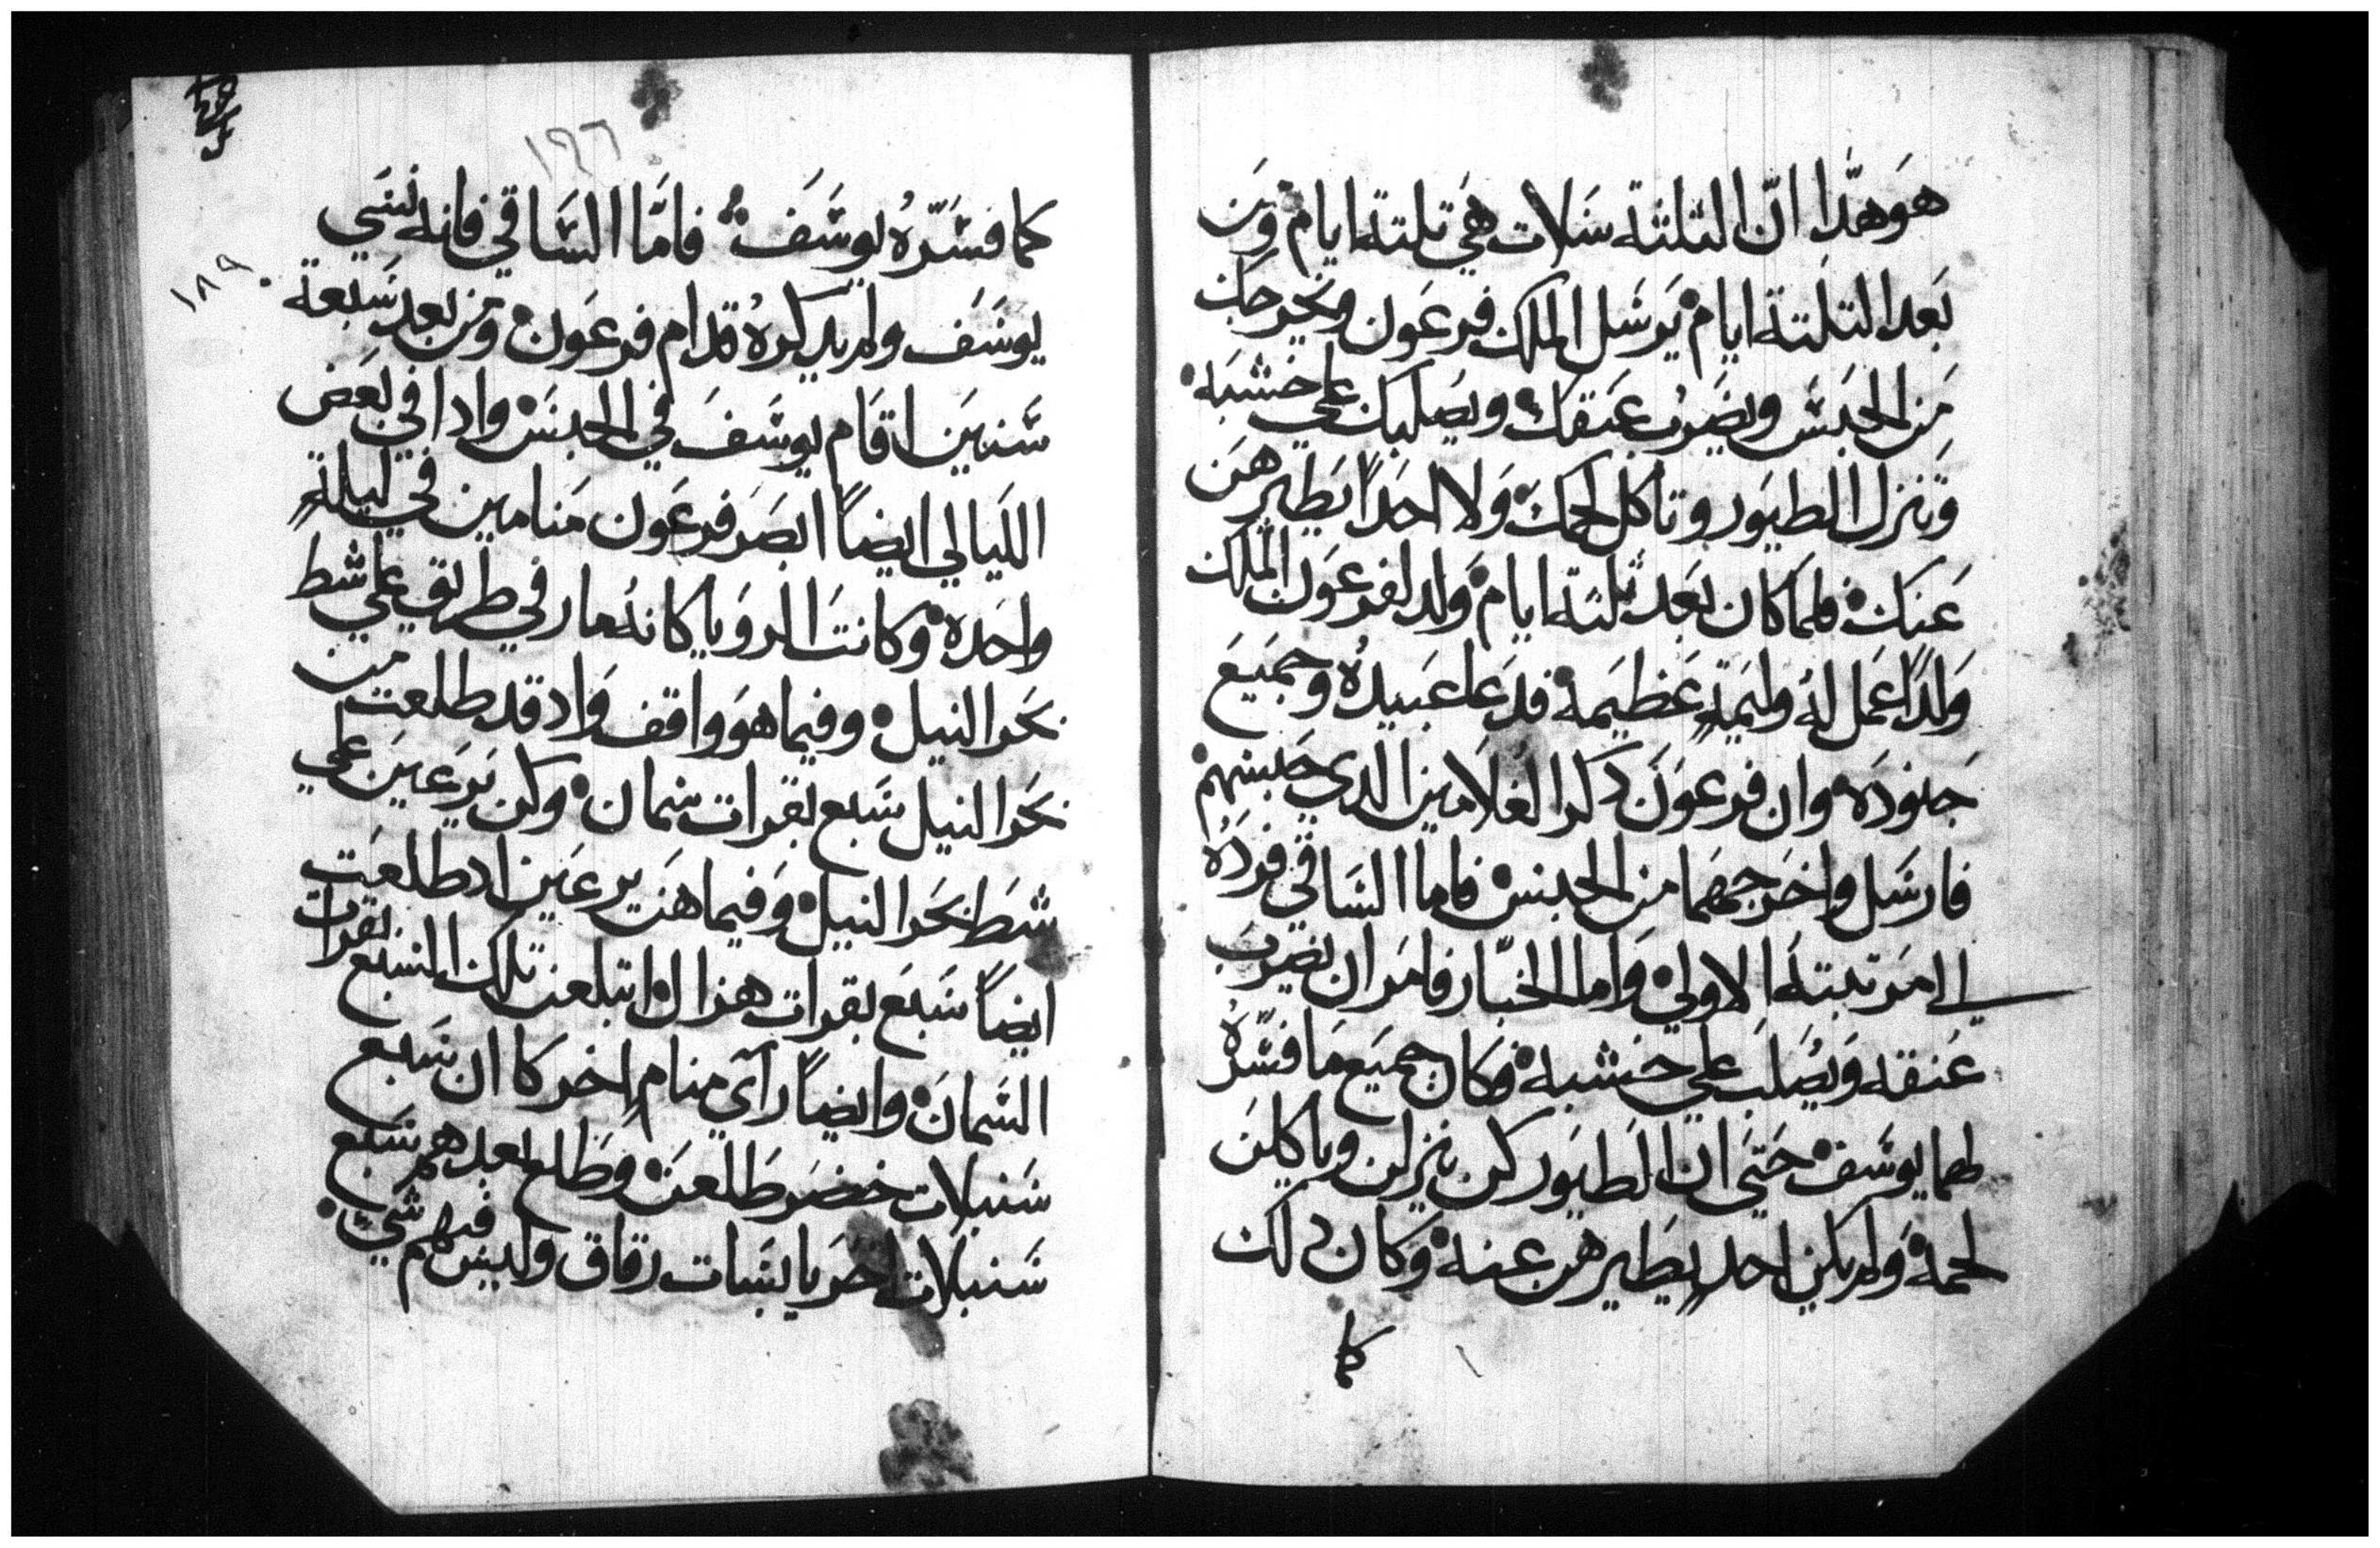 هو هدا ان الثلثة سلات هي تلتة ايام ومن
بعد التلتة ايام يرسل الملك فرعون ويخرجك
من الحبس ويضرب عنقك ويصلبك علي خشبة
وتنزل الطيور وتاكل لحمك ولا احداً يطيرهن
عنك فلما كان بعد ثلتة ايام ولد لفرعون الملك
ولداً عمل له وليمةٍ عظيمة فدعا عبيده وجميع
جنوده وان فرعون دكر الغلامين الدي حبسهم
فارسل واخرجهما من الحبس فاما الساقي فرده
الي مرتبته الاولي واما الخباز فامر ان يضرب
عنقه ويصلب علي خشبة فكان جميع ما فسره
لهما يوسف حتي ان الطيور كن ينزلن وياكلن
لحمه ولم يكن احدٍ يطيرهن عنه وكان دلك
كما
١٩٦
١٨٩
كما فسره يوسف فاما الساقي فانه نسي
يوسف ولم يدكره قدام فرعون ومن بعد سبعة
سنين اقام يوسف في الحبس وادا في بعض
الليالي ايضاً ابصر فرعون منامين في ليلةٍ
واحده وكانت الرويا كانه مار في طريق علي شط
بحر النيل وفيما هو واقف واد قد طلعت من
بحر النيل سبع بقرات سمان وكن يرعين علي
شط بحر النيل وفيما هن يرعين اد طلعت
ايضاً سبع بقرات هزال وابتلعن تلك السبع بقرات
السمان وايضاً رآي منامٍ اخر كا ان سبع
سنبلات خضر طلعن وطلع بعدهم سبع
سنبلات اخر يابسات رقاق وليس فيهم شيء